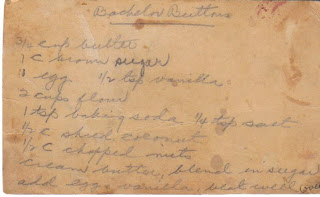 Bachelor Buttons
3/4 cup butter.
1 C brown sugar
1 egg 1/2 tsp vanilla.
2 cups flour
1 tsp baking soda. 1/4 tsp salt
1/2 C shred coconut
1/2 C chopped nuts
Cream butter, blend in sugar
add egg, vanilla, beat well (over